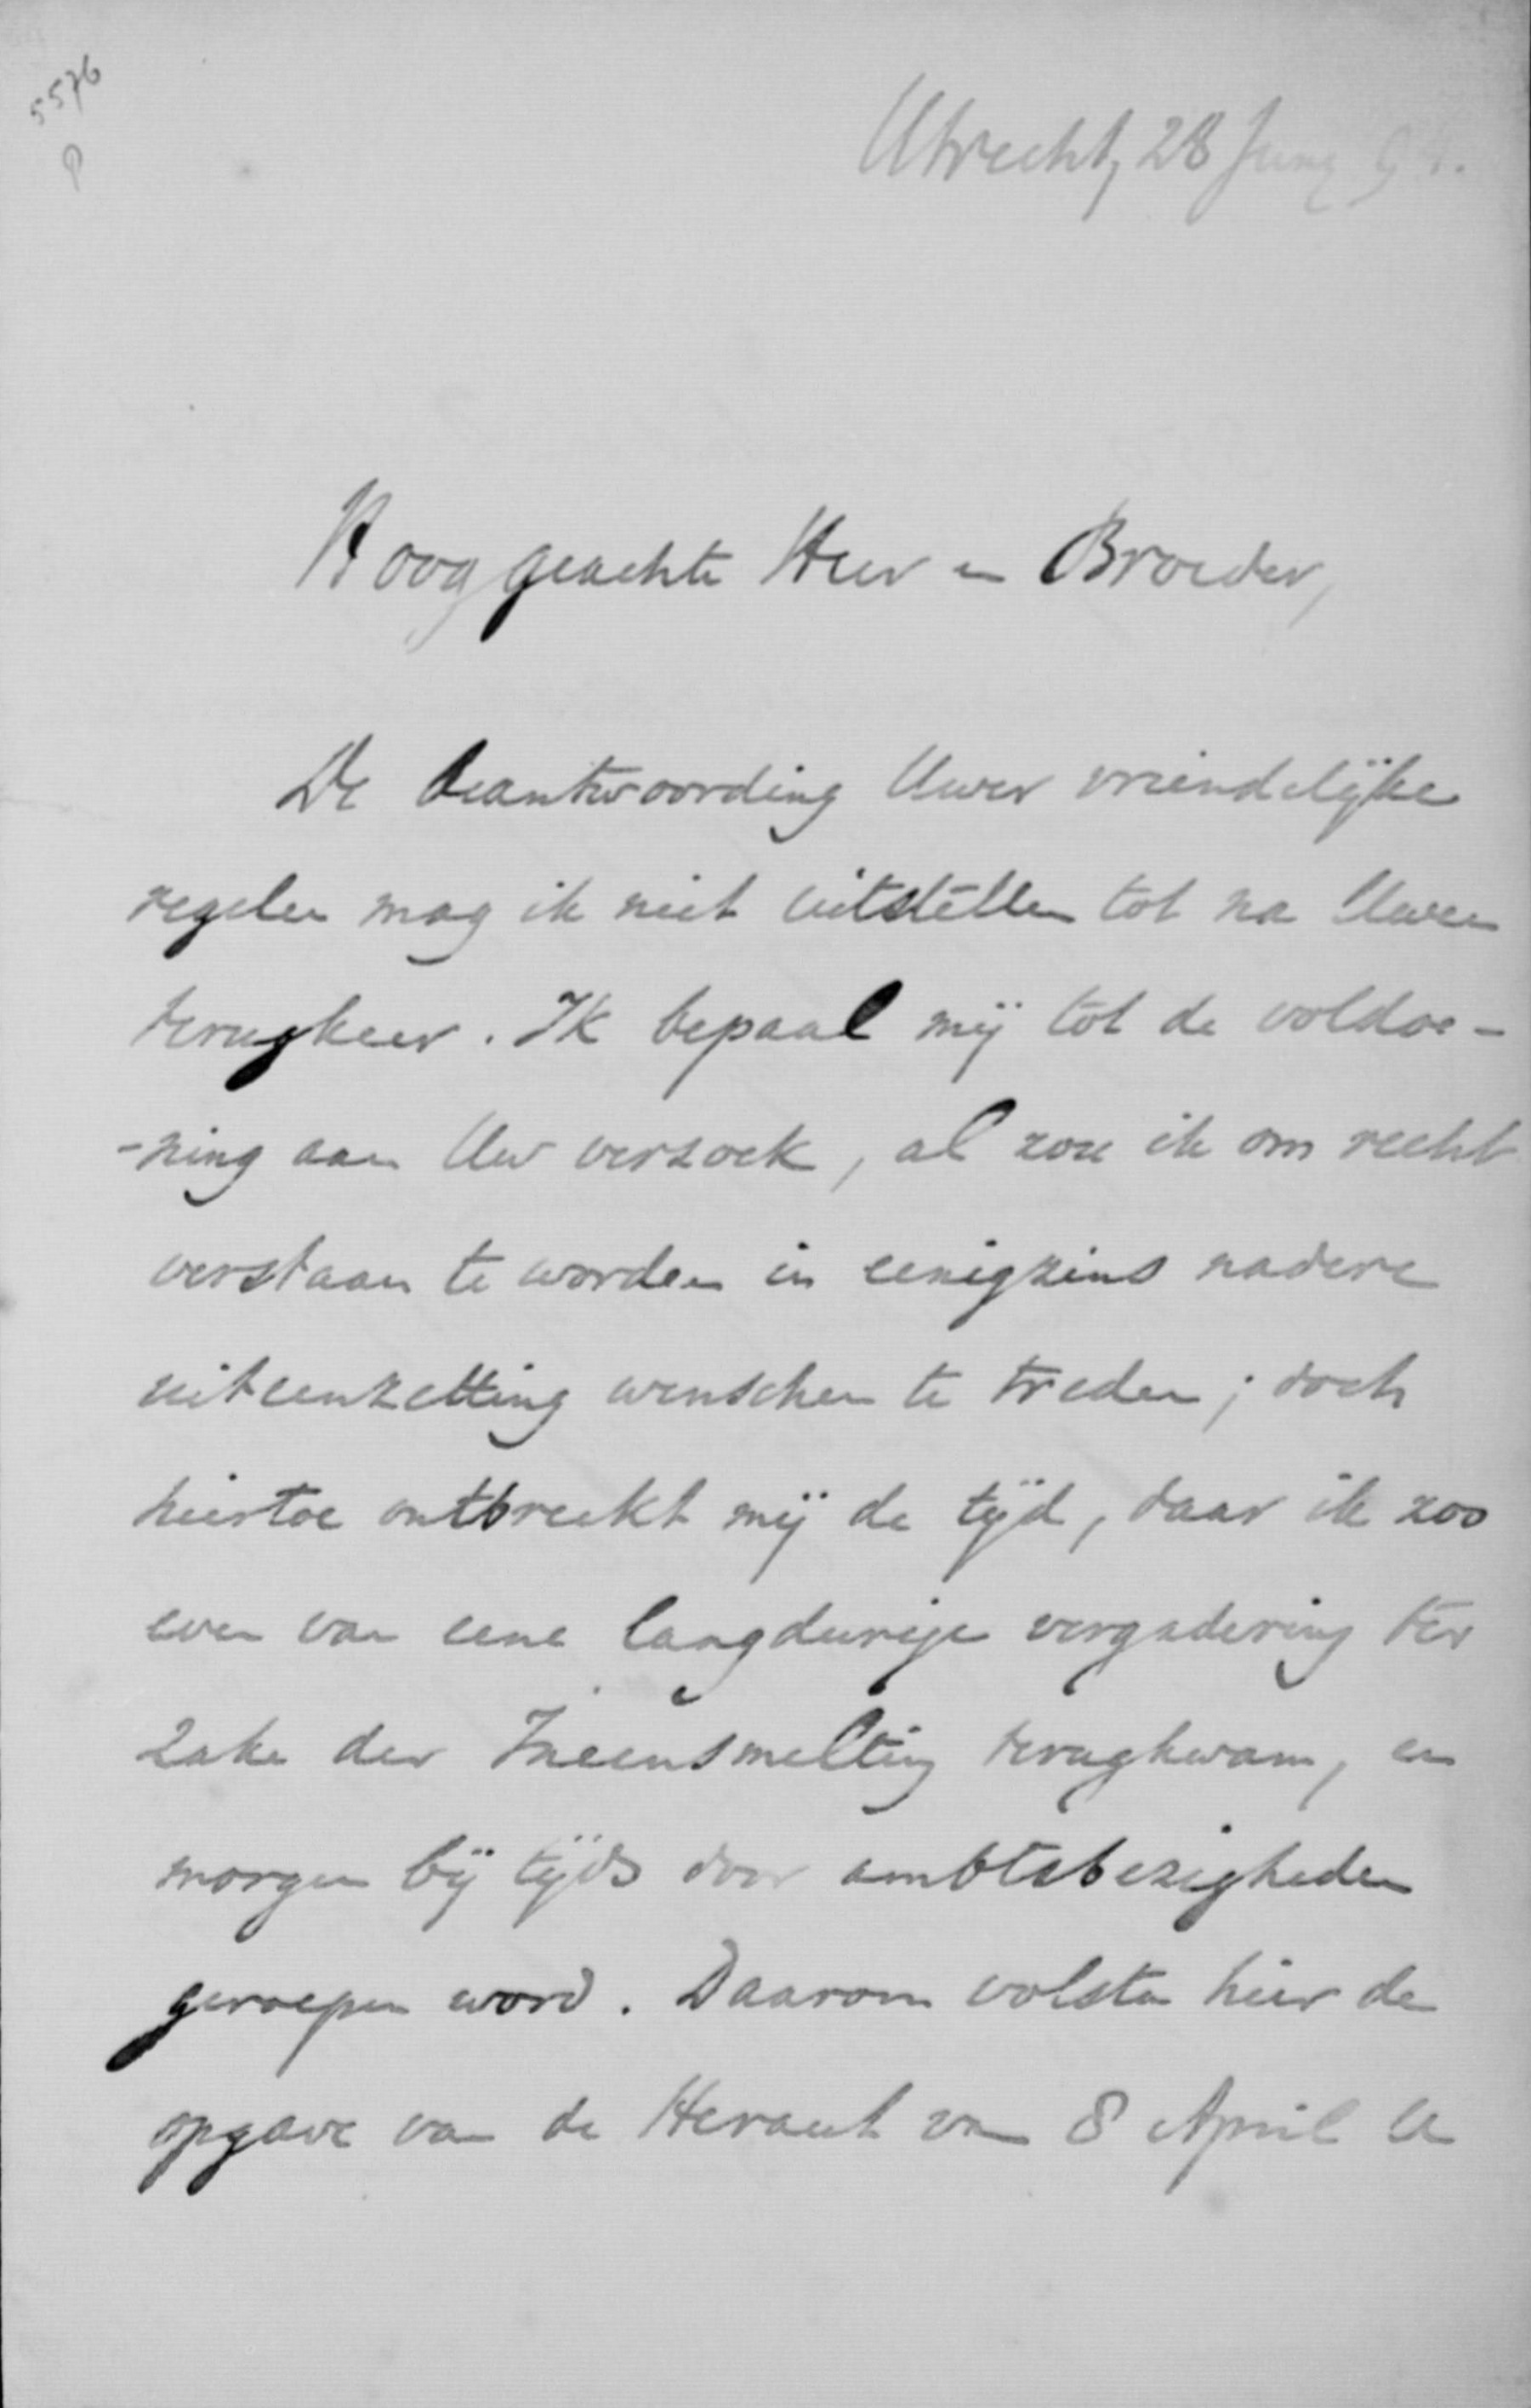 5576
P
Utrecht, 28 Juny 94.
Hooggeachte Heer en Broeder,
De beantwoording Uwer vriendelijke
regelen mag ik niet uitstellen tot na Uwen
terugkeer. Ik bepaal mij tot de voldoe-
-ning aan Uw verzoek, al zou ik om recht
verstaan te worden in eenigzins nadere
uiteenzetting wenschen te treden; doch
hiertoe ontbreekt mij de tijd, daar ik zoo
even van eene langdurige vergadering ter
zake der Ineensmelting terugkwam, en
morgen bij tijds door ambtsbezigheden
geroepen word. Daarom volsta hier de
opgave van de Heraut van 8 April